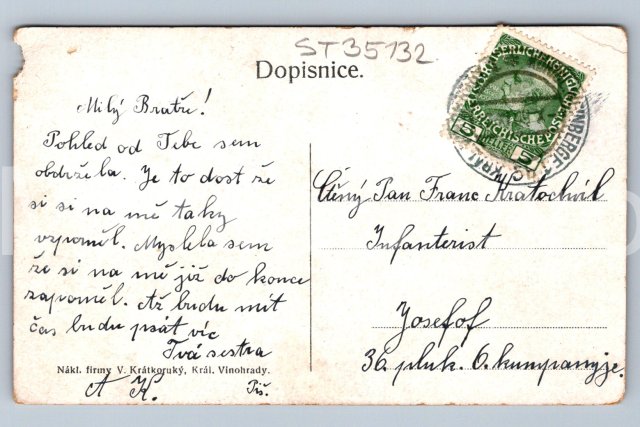 ST35132
Dopisnice.
Milý Bratře!
Pohled od Tebe sem
obdržela. Je to dost že
si si na mě taky
vzpoměl. Myslela sem
že si na mě již do konce
zapoměl. Až budu mít
čas budu psát víc
Tvá sestra
Nákl. firmy V. Krátkoruký, Král. Vinohrady.
A K.
Piš.
5 5
Ctěný Pan Franc Kratochvíl
Infanterist
Josefof
36 pluk. 6. kumpanyje.